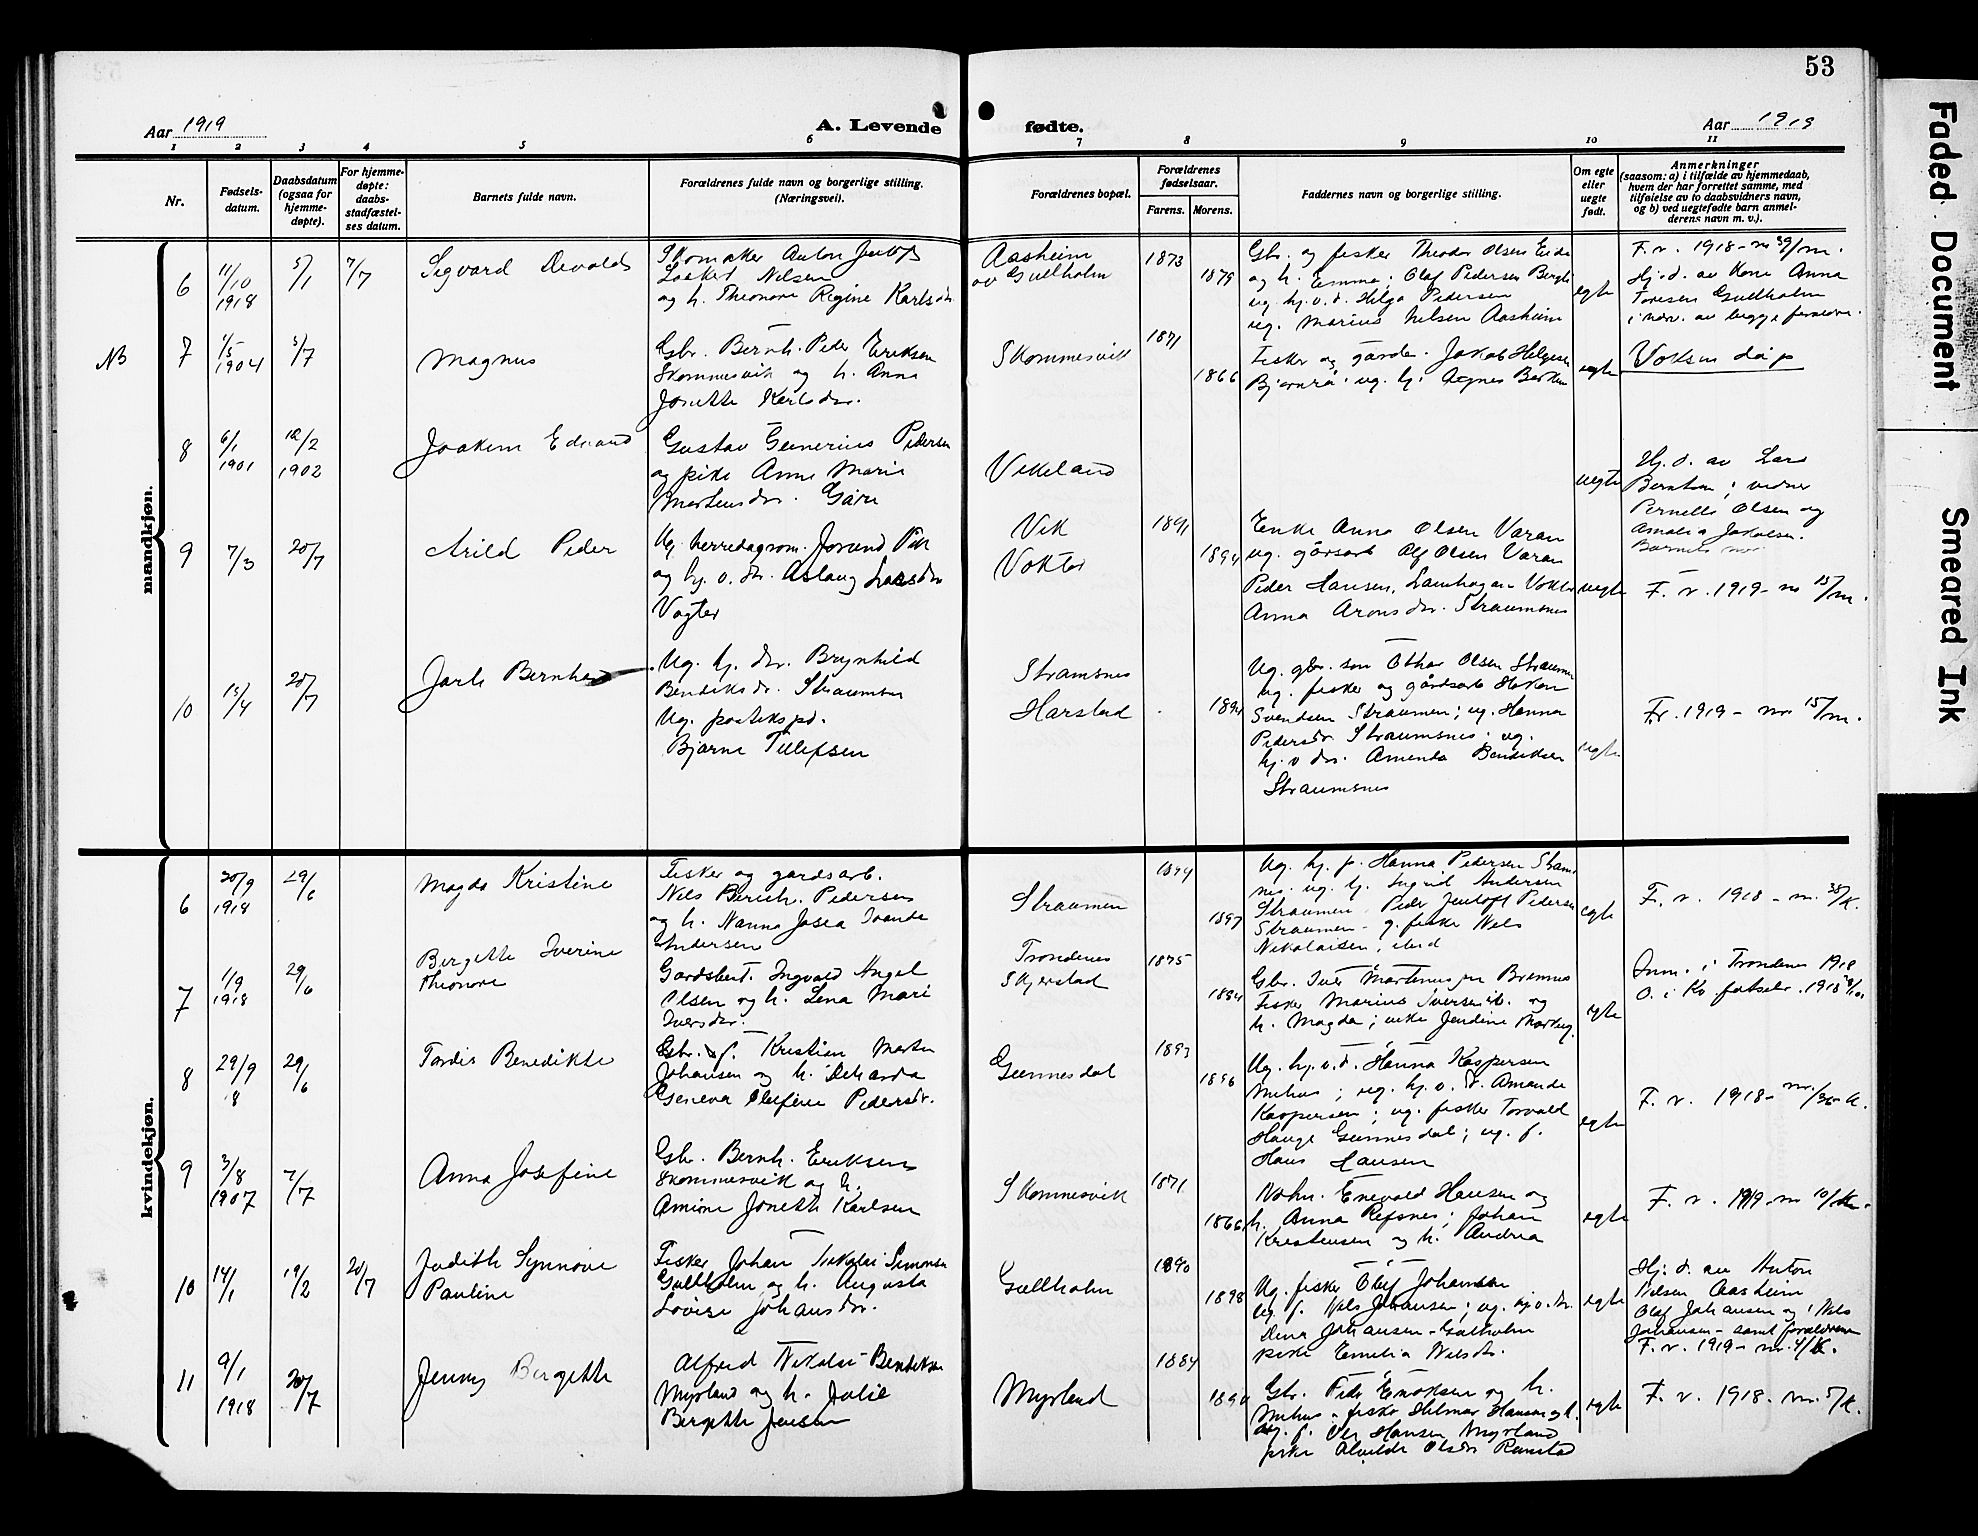 53
Aar 1919
A. Levende
fødte.
Aar 1919
1 2 3 4 5 6 7 8 9 10 11
Nr.
Fødsels-
datum.
Daabsdatum
(ogsaa for
hjemme-
døpte).
For hjemme-
døpte:
daabs-
stadfæstel-
ses datum.
Barnets fulde navn.
Forældrenes fulde navn og borgerlige stilling.
(Næringsvei).
Forældrenes bopæl.
Forældrenes
fødselsaar.
Farens. Morens.
Faddernes navn og borgerlige stilling.
Om egte
eller
uegte
født.
Anmerkninger
(saasom: a) i tilfælde av hjemmedaab,
hvem der har forrettet samme, med
tilføielse av to daabsvidners navn,
og b) ved uegtefødte barn anmel-
derens navn m. v.).
mandkjøn.
6
11/10
1918
5/1
7/7
Sigvard
Skomaker Anton
Nilsen
og h. Theonore Regine Karlsdr
Aasheim
av Gullholm
1873
1879
Gbr. og fisker Theodor Olsen Eide
og h. Emma; Olaf Pedersen
ug. hj.v.d. Helga Pedersen
ug. Marius Nilsen Aasheim
egte
F. r. 1918 - nr 39/m.
Hj. d. av Kone Anna
Toresen Gullholm
i nærv. av begge
NB
7
1/5
1904
5/7
Magnus
Gbr. Bernh. Peder Eriksen
Skommesvik og h. Anna
Jonette Karlsdr.
Skommesvik
1871
1866
Fisker og Jakob
ug. hj. Agnes
egte
Voksen dåp
8
6/1
1901
12/2
1902
Joakim Edvard
Gustav Pedersen
og pike Anne Marie
Martensdr.
Vikeland
uegte
Hj. d. av Lars
Berntsen; vidner
Pernelle Olsen og
Amalia Jakobsen.
Barnets mor
9
7/3
20/7
Arild Peder
Ug.
og hj. v. dr. Aslaug Larsdr
Vogter
Vik
Vokter
1891
1894
Enke Anna Olsen Varan
ug. gårsarb Olsen Varan
Peder Hansen, Vokter
Anna Aronsdr. Straumsnes
uegte
F. r. 1919 - nr 15/m.
10
15/4
20/7
Jarle Bernhard
Ug. hj. dr. Brynhild
Bendiksdr. Straumsnes
Ug.
Bjarne Tellefsen
Stramsnes
Harstad
1894
Ug. gbr. søn Othar Olsen Straumen
ug. fisker og gårdsarb Hakon
Svendsen Straumen; ug. Hanna
Pedersdr. Straumsnes. ug.
hj. v dr. Amanda Bendiksen
Straumsnes
uegte
F.r. 1919 - nr 15/m.
kvindekjøn.
6
20/9
1918
29/6
Magda Kristine
Fisker og gardsarb.
Nils Pedersen
og h. Nanna Josea
Andersen
Straumen
1894
1897
Ug. hj. p. Hanna Pedersen Straum
nes. ug. hj. Ingrid Andersen
Straumen. Peder Jentoft Pedersen
Straumen - g. fisker Nils
Nikolaisen, ibid
egte
F. r. 1918 - nr. 38/K.
7
1/9
1918
29/6
Bergette Iverine
Theonore
Gardsbest. Ingvald
Olsen og h. Lena Mari
Iversdr.
Trondenes
Skjerstad
1875
1884
Gbr. Iver Martinussen Bremnes
Fisker Marius Iversen ib. og
h. Magda; enke Jendine
egte
Anm. i Trondenes 1918
8
29/9
18
29/6
Tordis Benedikte
Gbr. f. Kristian Martin
Johansen og h. Dekarda
Geneva Olufine Pedersdr.
Gunnesdal
1893
1896
Ug. hj. v. d. Hanna Kaspersen
Melhus; ug. hj. v. d. Amanda
Kaspersen; ug. fisker Torvald
Hauge Gunnesdal; ug. f.
Hans Hansen
egte
F. r. 1918 - nr./36 K.
9
3/8
1907
7/7
Anna Josefine
Gbr. Bernh. Eriksen
Skommesvik og h.
Jonette Karlsen
Skommesvik
1871
1866
Enevald Hansen og
h. Anna Refsnes; Johan
Kristensen og h. Andrea
egte
F. r. 1919 nr 10/K.
10
14/1
19/2
20/7
Judith Synnøve
Pauline
Fisker Johan Nikolai Simonsen
Gullholm og h. Augusta
Lovise Johansdr.
Gullholm
1890
1898
Ug. fisker Olaf Johansen
ug. f. Nils Johansen; ug. hj. v. dr.
Dina Johansen - Gulholm
pike Emelia Nilsdr.
egte
Hj. d. av Anton
Nilsen Aasheim
Olaf Johansen og Nils
Johansen - samt foreldrene
F. r. 1919 - nr. 4/K.
11
9/1
1918
20/7
Jenny Bergette
Alfred Nikolai Bendiksen
Myrland og h. Julie
Bergette Jensen
Myrland
1884
1890
Gbr. Peder Enoksen og h.
Melhus. fisker Hilmar Hansen og h.
ug. f. Ole Hansen Myrland
pike Alvilde Olsdr
egte
F. r. 1918. nr. 5/K.
Faded Document
Smeared Ink